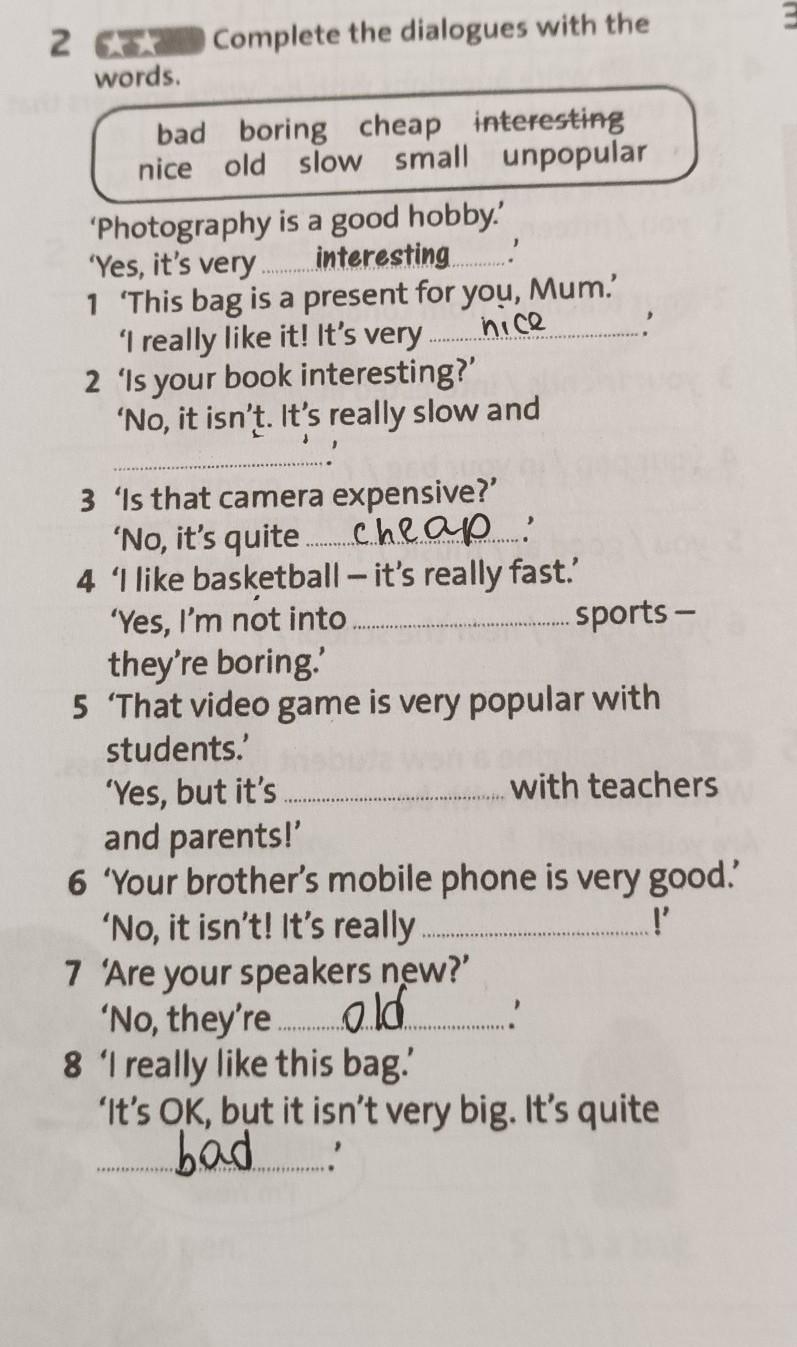 2 Complete the dialogues with the
words.
bad boring cheap interesting
nice old slow small unpopular
‘Photography is a good hobby.’
‘Yes, it’s very interesting.’
1 ‘This bag is a present for you, Mum.’
‘I really like it! It’s very nice.’
2 ‘Is your book interesting?’
‘No, it isn’t. It’s really slow and
.’
3 ‘Is that camera expensive?’
‘No, it’s quite cheap.’
4 ‘I like basketball – it’s really fast.’
‘Yes, I’m not into ........ sports –
they’re boring.’
5 ‘That video game is very popular with
students.’
‘Yes, but it’s ........ with teachers
and parents!’
6 ‘Your brother’s mobile phone is very good.’
‘No, it isn’t! It’s really ........!’
7 ‘Are your speakers new?’
‘No, they’re old.’
8 ‘I really like this bag.’
‘It’s OK, but it isn’t very big. It’s quite
bad.’